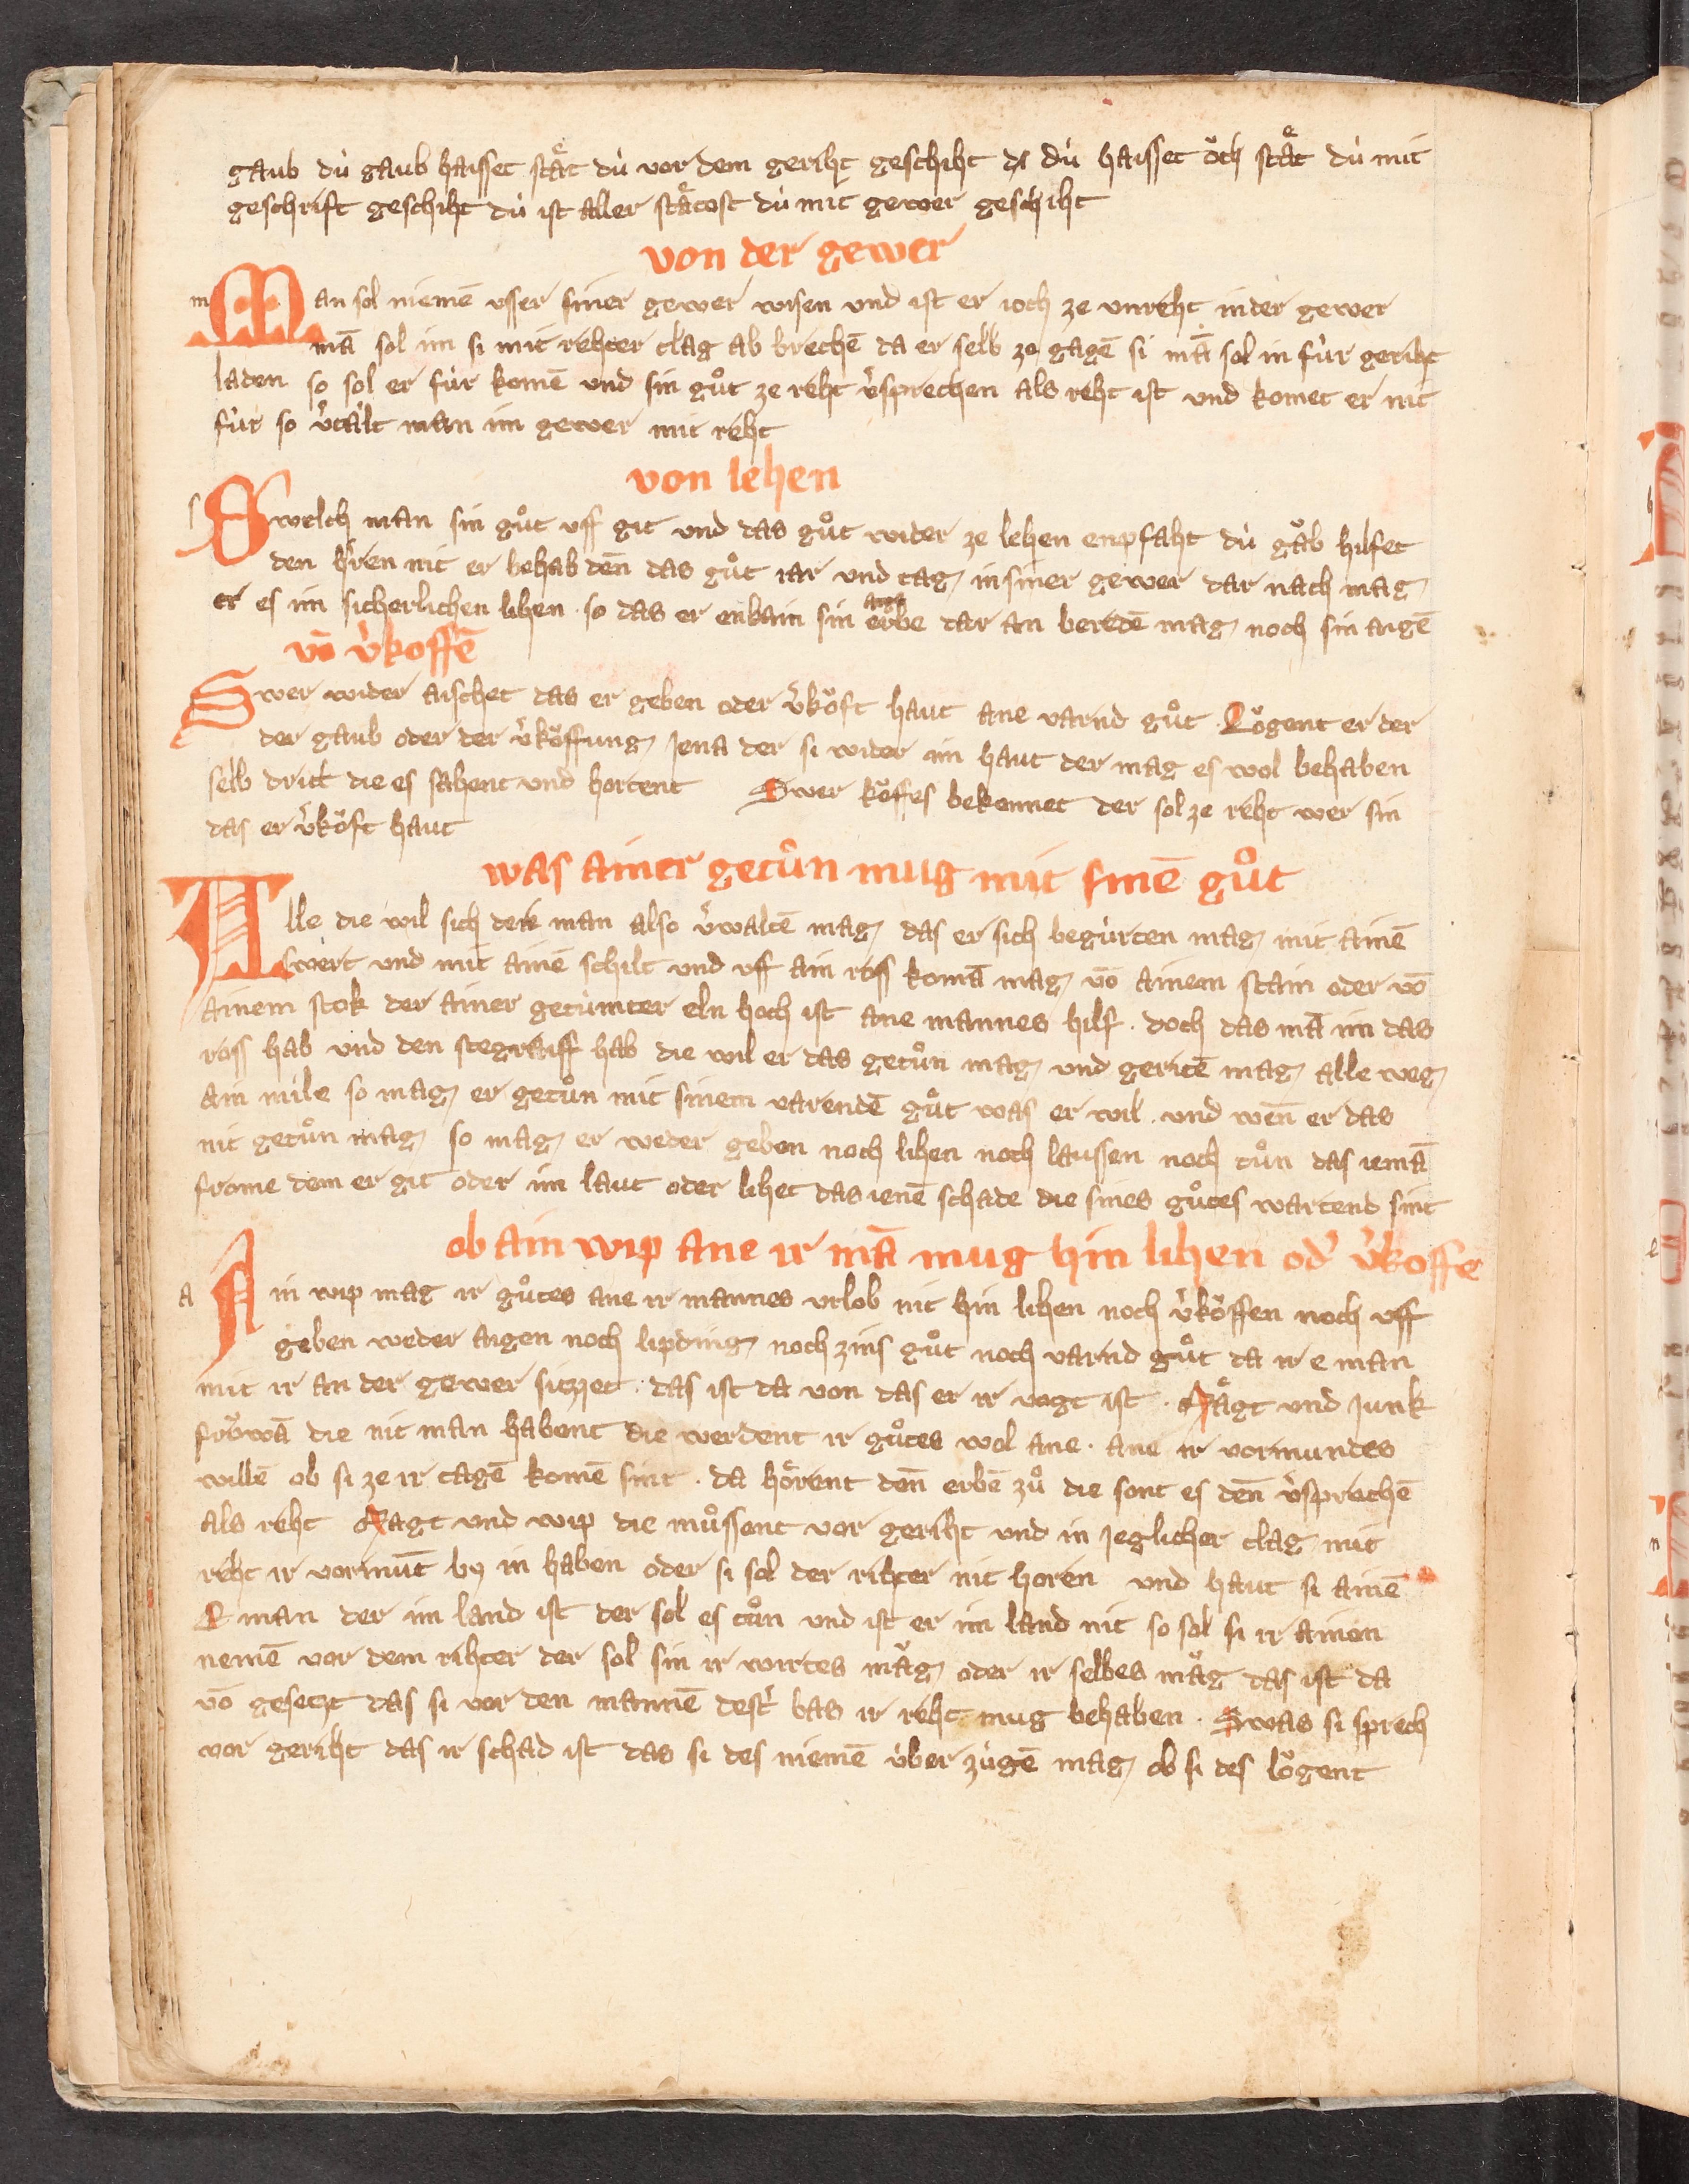 gaub dù gaub haisset stäͤt dù vor dem geriht geschiht dù haisset öch stäͤt dù mit
geschrift geschiht dù ist aller stäͤtost dù mit gewer geschiht
von der gewer
m Man sol niemē vsser siner gewer wisen vnd ist er ioch ze vnreht in der gewer
mā sol im si mit rehter clag ab brechē da er selb ze gagē si mā sol in fùr geriht
laden so sol er fùr komē vnd sin gůt ze reht v̓sprechen als reht ist vnd komet er nit
fùr so v̓tält man im gewer mit reht
von lehen
s Swelch man sin gůt vff git vnd das gůt wider ze lehen enpfaht dù gäb hilfet
den h̓ren nit er behab deñ das gůt iar vnd tag in siner gewer dar nach mag
er es im sicherlichen lihen · so das er enkain sin erbe dar an beredē mag noch sin aigē
vō v̓koffē
Swer wider aischet das er geben oder v̓köft haut ane varnd gůt Lögent er der
der gaub oder der v̓köffung Jena der si wider im haut der mag es wol behaben
selb dritt die es sahent vnd hortent Swer köffes bekennet der sol ze reht wer sin
das er v̓köft haut
was ainer getůn mug mit sinē gůt
Alle die wil sich dek man also v̓waltē mag das er sich begùrten mag mit ainē
swert vnd mit ainē schilt vnd vff ain ross komā mag vō ainem stain oder vō
ainem stok der ainer getùmter eln hoch ist ane mannes hilf · doch das mā im das
ross hab vnd den stegraiff hab die wil er das getůn mag vnd geritē mag alle weg
ain mile so mag er getůn mit sinem varendē gůt was er wil · vnd weñ er das
nit getůn mag so mag er weder geben noch lihen noch laussen noch tůn das iemā
frome dem er git oder im laut oder lihet das ienē schade die sines gůtes wartend sint
ob ain wip ane ir mā mug hin lihen od̓ v̓koffe
a Ain wip mag ir gůtes ane ir mannes vrlob nit hin lihen noch v̓köffen noch vff
geben weder aigen noch lipding noch zins gůt noch varnd gůt da ir e man
mit ir an der gewer sitzzet · das ist da von das er ir vogt ist · Mägt vnd Junk
fröwā die nit man habent die werdent ir gůtes wol ane · ane ir vormundes
willē ob si ze ir tagē komē sint · da hörent deñ erbē zů die sont es deñ v̓sprechē
als reht Magt vnd wip die můssent vor geriht vnd in Jeglicher clag mit
reht ir vormūt by in haben oder si sol der rihter nit horen vnd haut si ainē
E man der im land ist der sol es tůn vnd ist er im land nit so sol si ir ainen
nemē vor dem rihter der sol sin ir wirtes mäg oder ir selbes mäg das ist da
vō gesetzt das si vor den mannē dest̓ bas ir reht mug behaben · Swas si sprech
vor geriht das ir schad ist das si des niemē ùber zùgē mag ob si des lögent